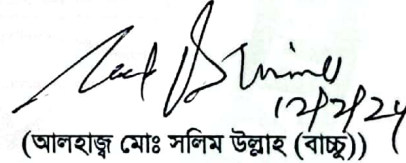 12/2/24
(আলহাজ্ব মোঃ সলিম উল্লাহ (বাচ্চু))